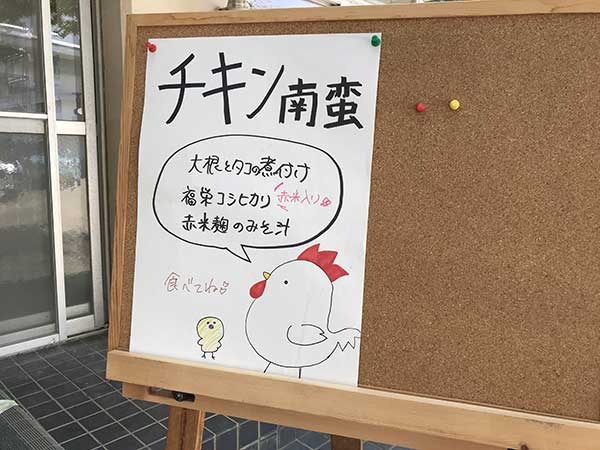 チキン南蛮
大根とタコの煮付け
福栄コシヒカリ 赤米入り
赤米麹のみそ汁
食べてね